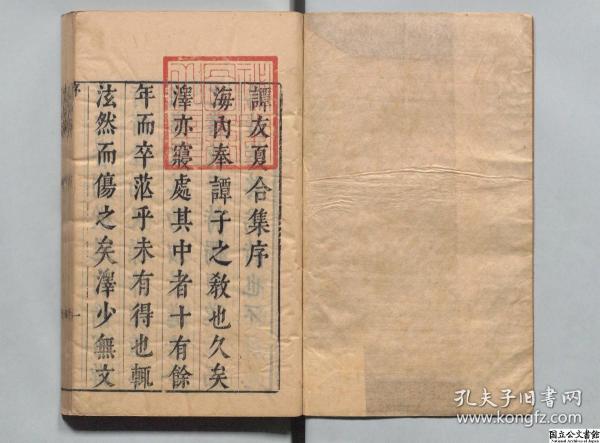 譚友夏合集序
海內奉譚子之敎也久矣
澤亦寢處其中者十有餘
年而卒茫乎未有得也輒
泫然而傷之矣澤少無文
序
一
孔夫子旧书网
www.kongfz.com
国立公文書館
National Archives of Japan